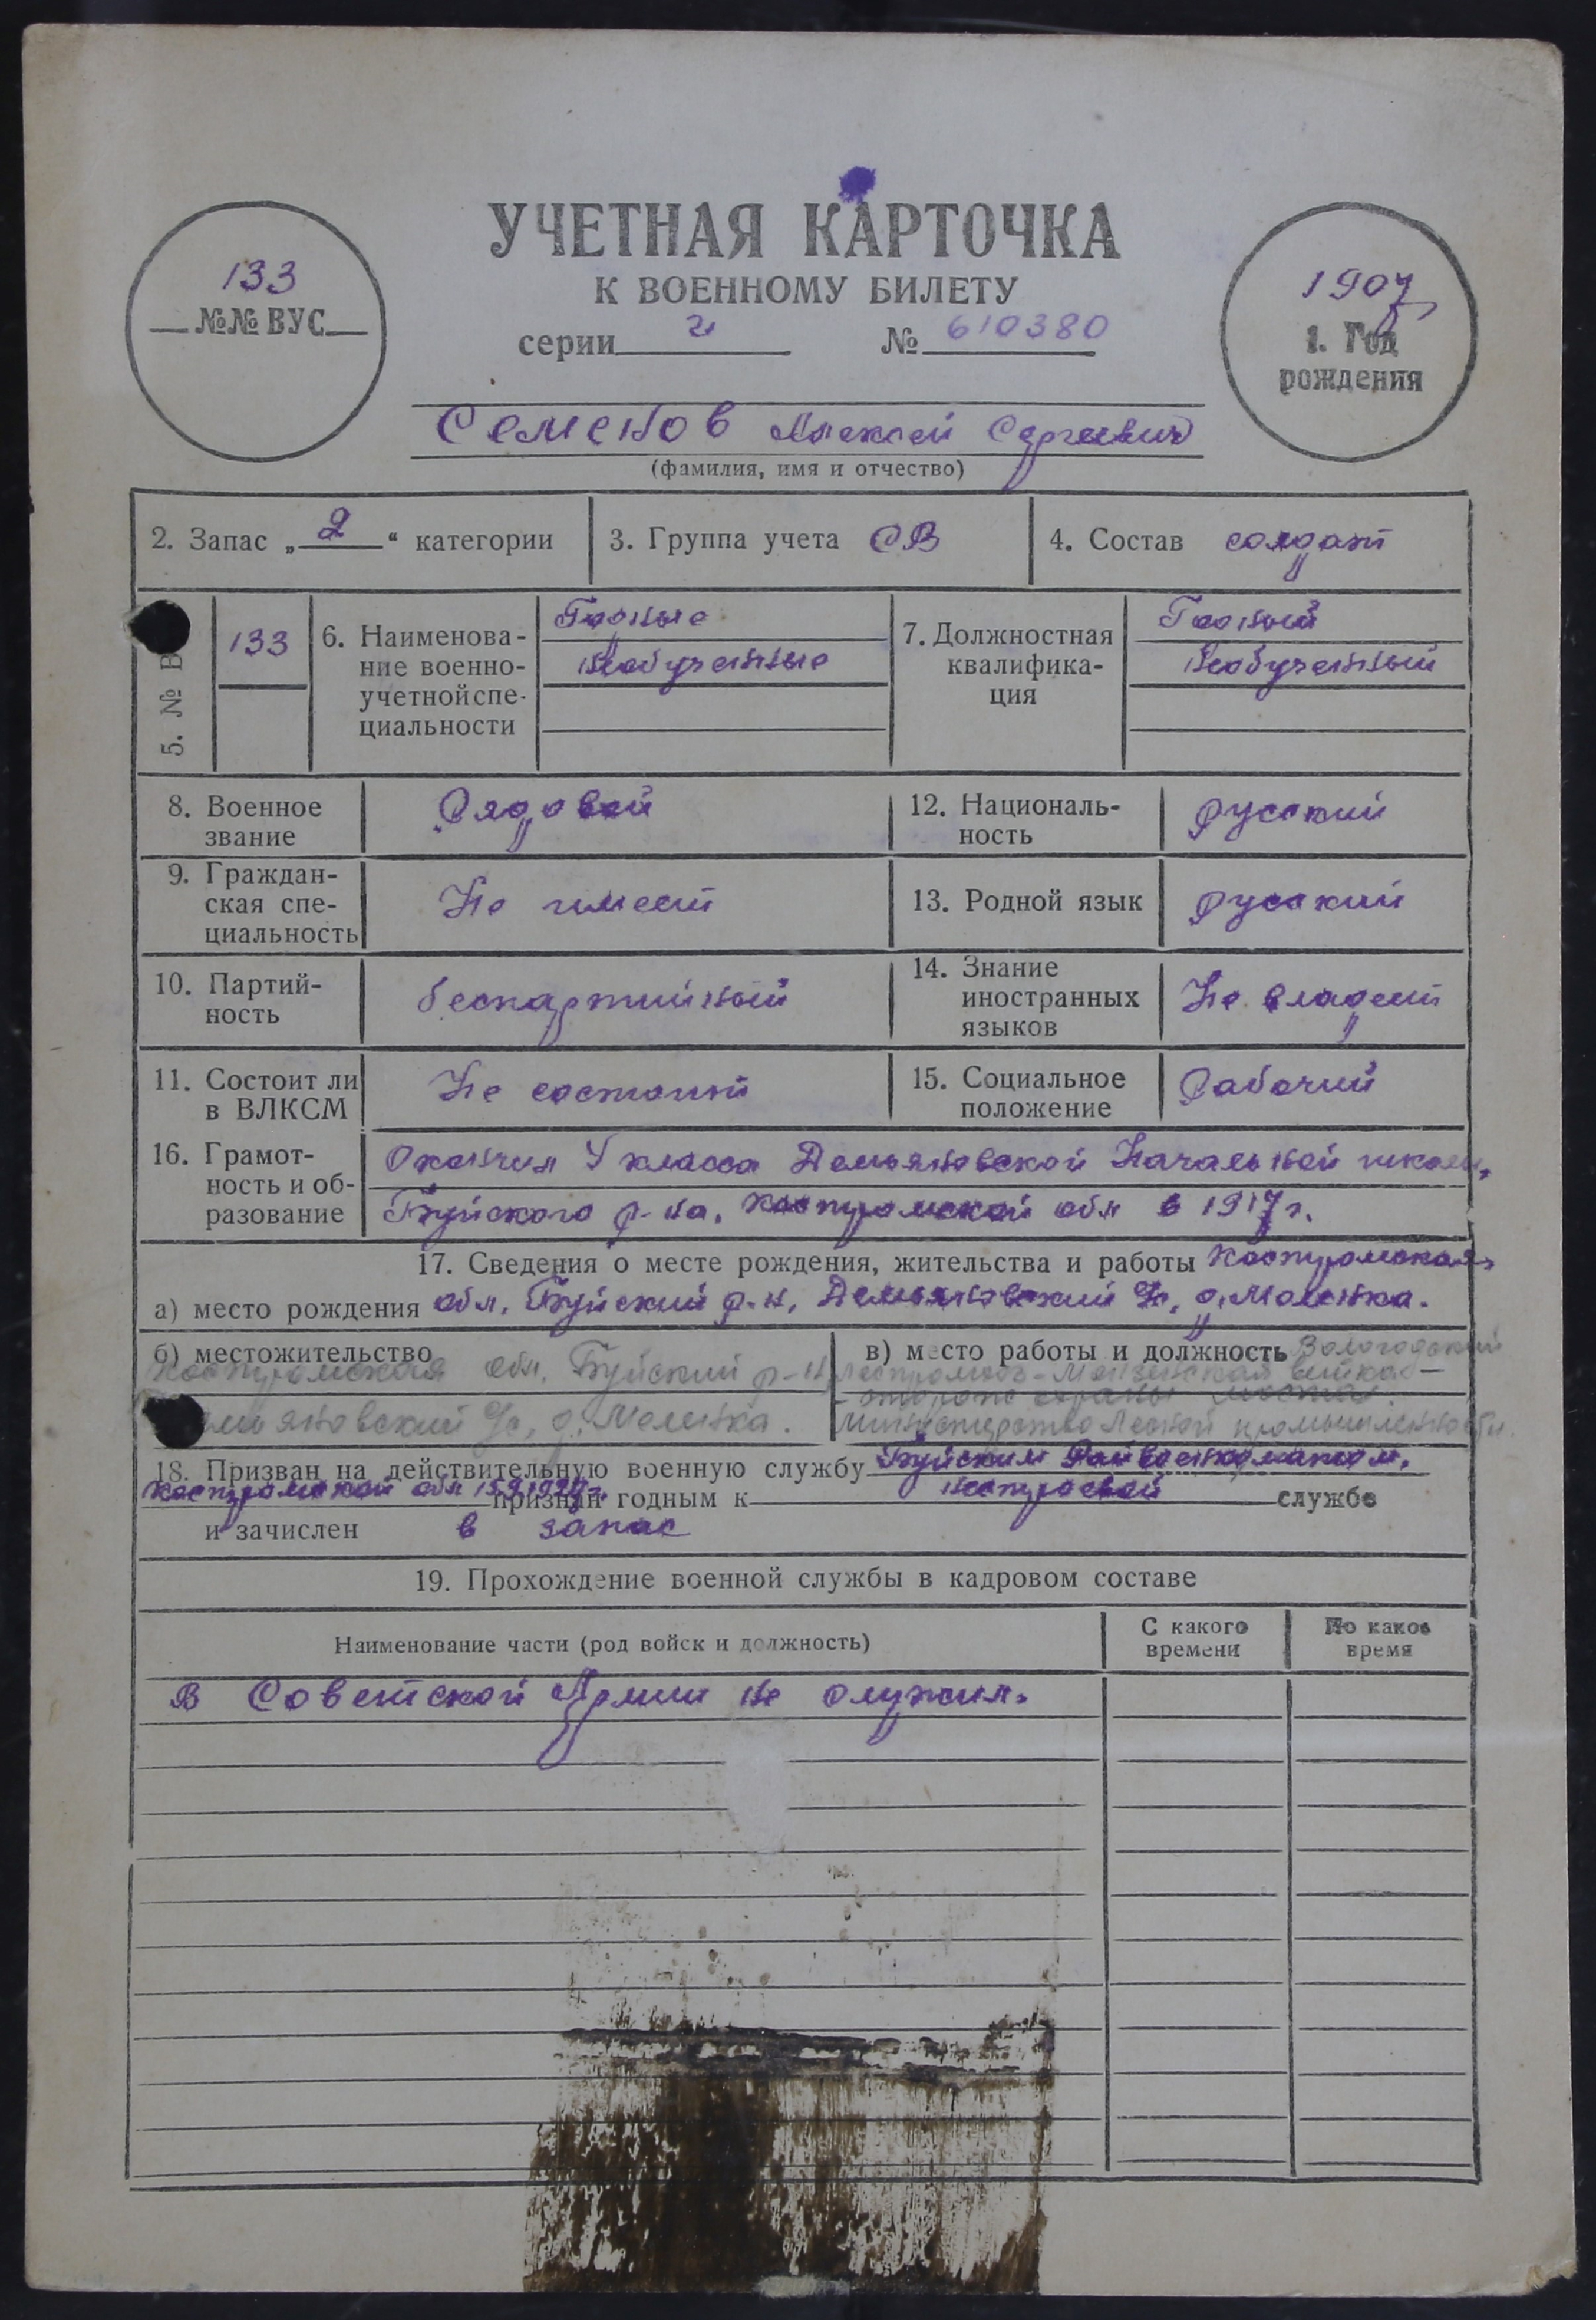 УЧЕТНАЯ КАРТОЧКА
К ВОЕННОМУ БИЛЕТУ
серии № 610380
133
№№ ВУС
1907
1. Год
рождения
Семенов Алексей Сергеевич
(фамилия, имя и отчество)
2. Запас „ 2 “ категории
3. Группа учета СВ
4. Состав солдат
5. № В
133
6. Наименова-
ние военно-
учетной спе-
циальности
Годные
необученные
7. Должностная
квалифика-
ция
Годный
необученный
8. Военное
звание
Рядовой
12. Националь-
ность
русский
9. Граждан-
ская спе-
циальность
Не имеет
13. Родной язык
русский
10. Партий-
ность
беспартийный
14. Знание
иностранных
языков
Не владеет
11. Состоит ли
в ВЛКСМ
Не состоит
15. Социальное
положение
Рабочий
16. Грамот-
ность и об-
разование
Окончил класса Демьяновской Начальной школы,
Буйского р-на, Костромской обл в 1917 г.
17. Сведения о месте рождения, жительства и работы Костромская
а) место рождения обл, Буйский р-н, Демьяновский с, д.
б) местожительство
Костромская обл, Буйский р-н
яновский с, д.
в) место работы и должность Вологодский
сторож охраны моста.
Министерство Лесной промышленности.
18. Призван на действительную военную службу Буйским Райвоенкоматом,
Костромской обл признан годным к нестроевой службе
и зачислен в запас
19. Прохождение военной службы в кадровом составе
Наименование части (род войск и должность)
С какого
времени
По какое
время
В Советской Армии не служил.